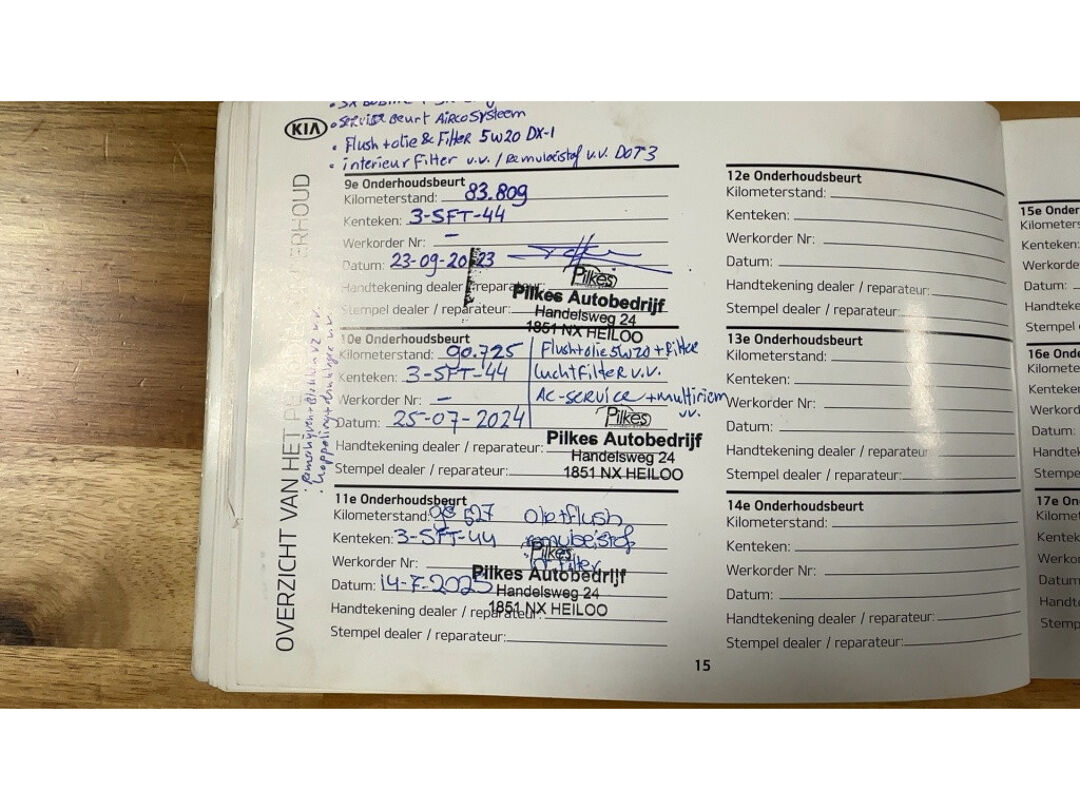 KIA
• Service Beurt Aircosysteem
• Flush + olie & Filter 5W20 DX-1
• interieur Filter v.v. / Remvloeistof v.v. DOT3
OVERZICHT VAN HET
ERHOUD
9e Onderhoudsbeurt
Kilometerstand: 83.809
Kenteken: 3-SFT-44
Werkorder Nr: –
Datum: 23-09-2023
Handtekening dealer / reparateur:
Stempel dealer / reparateur:
Pilkes
Pilkes Autobedrijf
Handelsweg 24
1851 NX HEILOO
10e Onderhoudsbeurt
Kilometerstand: 90.725
Kenteken: 3-SFT-44
Werkorder Nr: –
Datum: 25-07-2024
Handtekening dealer / reparateur:
Stempel dealer / reparateur:
Flush + olie 5W20 + Filter
Luchtfilter v.v.
AC-service + multiriem
v.v.
Pilkes
Pilkes Autobedrijf
Handelsweg 24
1851 NX HEILOO
11e Onderhoudsbeurt
Kilometerstand: 527
Kenteken: 3-SFT-44
Werkorder Nr:
Datum: 14-7-2025
Handtekening dealer / reparateur:
Stempel dealer / reparateur:
olie + flush
remvloeistof
filter
Pilkes
Pilkes Autobedrijf
Handelsweg 24
1851 NX HEILOO
12e Onderhoudsbeurt
Kilometerstand:
Kenteken:
Werkorder Nr:
Datum:
Handtekening dealer / reparateur:
Stempel dealer / reparateur:
13e Onderhoudsbeurt
Kilometerstand:
Kenteken:
Werkorder Nr:
Datum:
Handtekening dealer / reparateur:
Stempel dealer / reparateur:
14e Onderhoudsbeurt
Kilometerstand:
Kenteken:
Werkorder Nr:
Datum:
Handtekening dealer / reparateur:
Stempel dealer / reparateur:
15
15e Onder
Kilometers
Kenteken:
Werkorde
Datum:
Handteke
Stempel
16e Onde
Kilomet
Kenteke
Werkord
Datum:
Handtek
Stempe
17e On
Kilomet
Kenteke
Werko
Datum
Handt
Stemp